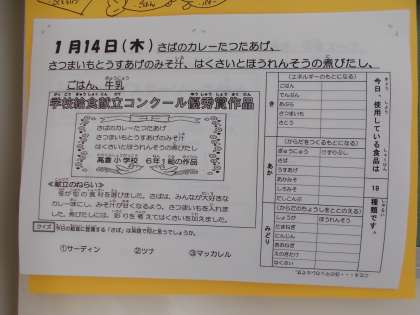 1月14日(木) さばのカレーたつたあげ、
さつまいもとうすあげのみそ汁、はくさいとほうれんそうの煮びたし、
ごはん、牛乳
学校給食献立コンクール優秀賞作品
さばのカレーたつたあげ
さつまいもとうすあげのみそ汁
はくさいとほうれんそうの煮びたし
小学校 6年1組の作品
≪献立のねらい≫
冬が旬の食材を選びました。さばは、みんなが大好きな
カレー味にし、みそ汁が甘くなるよう、さつまいもを入れま
した。煮びたしには、彩りを考えてはくさいを加えました。
クイズ 今日の給食に登場する「さば」は英語で何と言うでしょうか。
①サーディン ②ツナ ③マッカレル
今日、使用している食品は
19
種類です。
き
(エネルギーのもとになる)
ごはん
でんぷん
あぶら
さつまいも
さとう
あか
(からだをつくるもとになる)
ぎゅうにゅう
さば
うすあげ
あかみそ
しろみそ
だしこんぶ
みどり
(からだのちょうしをととのえる)
しょうが ほうれんそう
たまねぎ
にんじん
あおねぎ
えのきたけ
はくさい